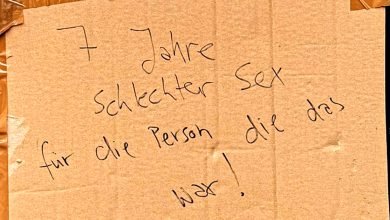 7 Jahre
Schlechter Sex
für die Person die das
war!